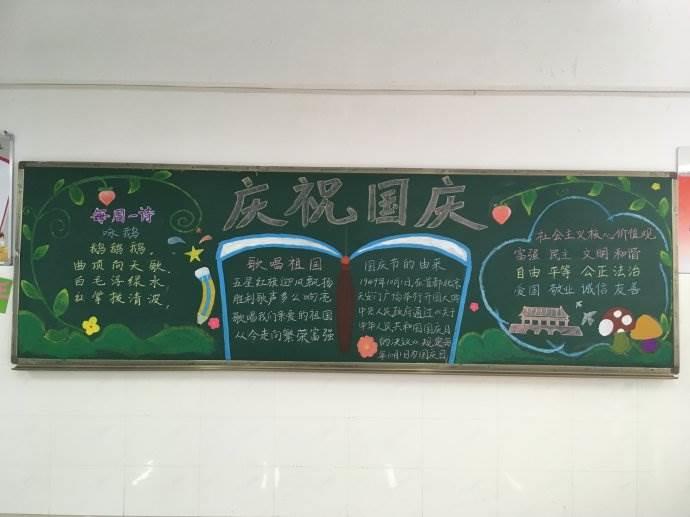 庆祝国庆
每周一诗
咏鹅
鹅鹅鹅,
曲项向天歌.
白毛浮绿水,
红掌拨清波,
歌唱祖国
五星红旗迎风飘扬
胜利歌声多么响亮
歌唱我们亲爱的祖国
从今走向繁荣富强
国庆节的由来
1949年10月1日,在首都北京
天安门广场举行开国大典
中央人民政府通过《关于
中华人民共和国国庆日
的决议》规定每
年10月1日为国庆日
社会主义核心价值观
富强 民主 文明 和谐
自由 平等 公正 法治
爱国 敬业 诚信 友善